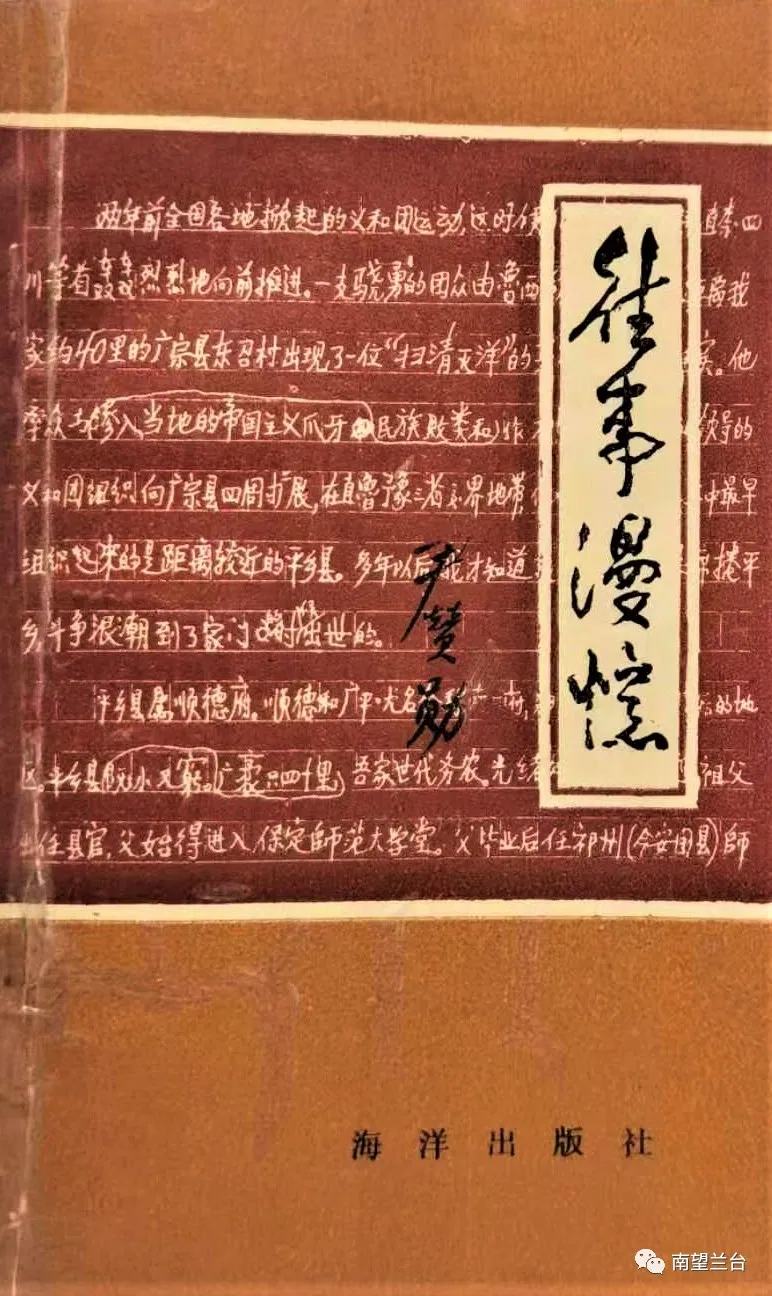 往事漫憶
尹赞勋
两年前全国各地掀起的义和团运动,这时使 直隶.四
川等省轰轰烈烈地向前推进。一支骁勇的团众由鲁西 距离我
家约40里的广宗县东召村出现了一位“扫清灭洋”的 。他
群众与掺入当地的帝国主义爪牙和民族败类和作 领导的
义和团组织向广宗县四周扩展,在直鲁豫三省交界地带, 中最早
组织起来的是距离较近的平乡县。多年以后我才知道 席捲平
乡,斗争浪潮到了家门时屈世的。
平乡县属顺德府。顺德和广平.大名 府, 的地
区。平乡县既小又穷。广袤只四十里,吾家世代务农。光绪 祖父
出任县官,父始得进入保定師范大学堂。父毕业后任祁州(今安国县)師
海洋出版社
南望兰台